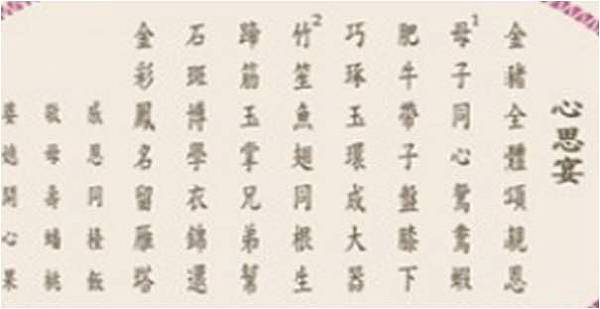 心思宴
金豬全體頌親恩
母1子同心鴛鴦蝦
肥牛帶子盤膝下
巧琢玉環成大器
竹2笙魚翅同根生
蹄筋玉掌兄弟幫
石斑博學衣錦還
金彩鳳名留雁塔
感恩同檯飯
敬母壽蟠桃
婆媳開心果